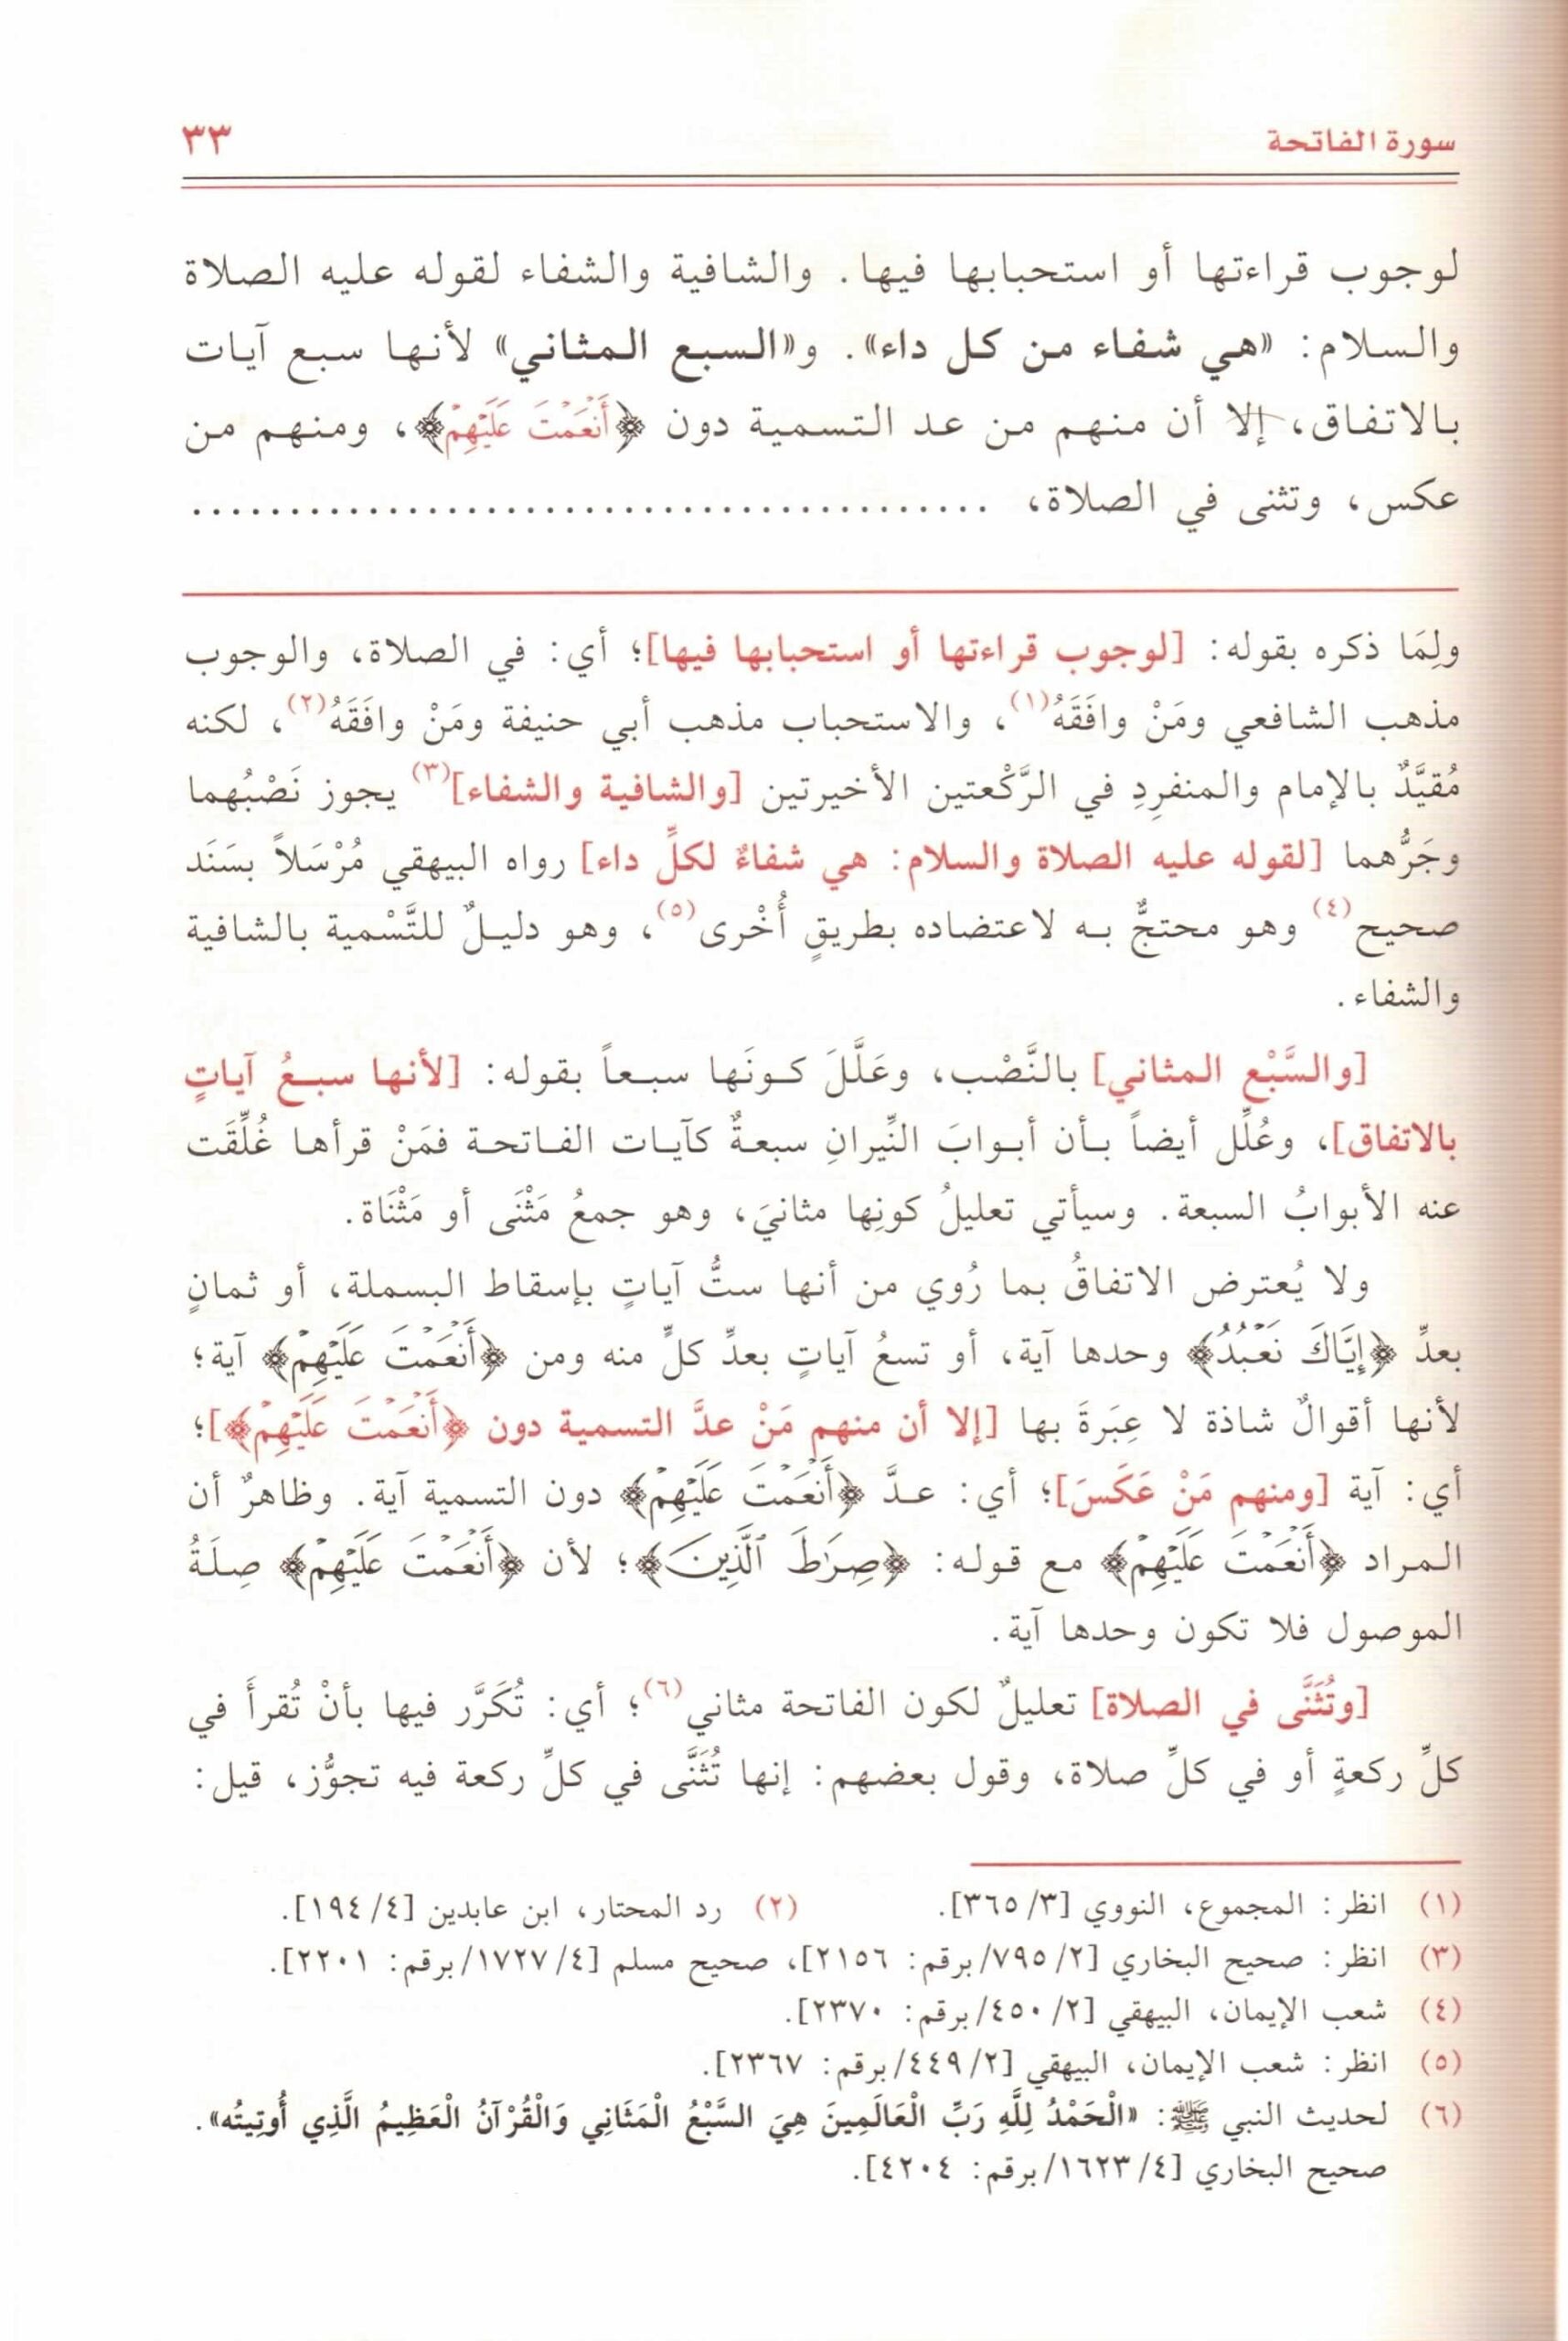 سورة الفاتحة ٣٣
لوجوب قراءتها أو استحبابها فيها. والشافية والشفاء لقوله عليه الصلاة
والسلام: «هي شفاء من كل داء». و«السبع المثاني» لأنها سبع آيات
بالاتفاق، إلا أن منهم من عد التسمية دون ﴿أَنۡعَمۡتَ عَلَيۡهِمۡ﴾، ومنهم من
عكس، وتثنى في الصلاة، ........................................
ولِمَا ذكره بقوله: [لوجوب قراءتها أو استحبابها فيها]؛ أي: في الصلاة، والوجوب
مذهب الشافعي ومَنْ وافَقَهُ(١)، والاستحباب مذهب أبي حنيفة ومَنْ وافَقَهُ(٢)، لكنه
مُقيَّدٌ بالإمام والمنفرِدِ في الرَّكْعتين الأخيرتين [والشافية والشفاء](٣) يجوز نَصْبُهما
وجَرُّهما [لقوله عليه الصلاة والسلام: هي شفاءٌ لكلِّ داء] رواه البيهقي مُرْسَلاً بسَنَد
صحيح(٤) وهو محتجٌّ به لاعتضاده بطريقٍ أُخْرى(٥)، وهو دليلٌ للتَّسْمية بالشافية
والشفاء.
[والسَّبْع المثاني] بالنَّصْب، وعَلَّلَ كونَها سبعاً بقوله: [لأنها سبعُ آياتٍ
بالاتفاق]، وعُلِّل أيضاً بأن أبوابَ النِّيرانِ سبعةٌ كآيات الفاتحة فمَنْ قرأها غُلِّقَت
عنه الأبوابُ السبعة. وسيأتي تعليلُ كونِها مثانيَ، وهو جمعُ مَثْنَى أو مَثْنَاة.
ولا يُعترض الاتفاقُ بما رُوي من أنها ستُّ آياتٍ بإسقاط البسملة، أو ثمانٍ
بعدِّ ﴿إِيَّاكَ نَعۡبُدُ﴾ وحدها آية، أو تسعُ آياتٍ بعدِّ كلٍّ منه ومن ﴿أَنۡعَمۡتَ عَلَيۡهِمۡ﴾ آية؛
لأنها أقوالٌ شاذة لا عِبَرةَ بها [إلا أن منهم مَنْ عدَّ التسمية دون ﴿أَنۡعَمۡتَ عَلَيۡهِمۡ﴾]؛
أي: آية [ومنهم مَنْ عَكَسَ]؛ أي: عدَّ ﴿أَنۡعَمۡتَ عَلَيۡهِمۡ﴾ دون التسمية آية. وظاهرٌ أن
المراد ﴿أَنۡعَمۡتَ عَلَيۡهِمۡ﴾ مع قوله: ﴿صِرَٰطَ ٱلَّذِينَ﴾؛ لأن ﴿أَنۡعَمۡتَ عَلَيۡهِمۡ﴾ صِلَةُ
الموصول فلا تكون وحدها آية.
[وتُثَنَّى في الصلاة] تعليلٌ لكون الفاتحة مثاني(٦)؛ أي: تُكَرَّر فيها بأنْ تُقرأَ في
كلِّ ركعةٍ أو في كلِّ صلاة، وقول بعضهم: إنها تُثَنَّى في كلِّ ركعة فيه تجوُّز، قيل:
(١) انظر: المجموع، النووي [٣/ ٣٦٥]. (٢) رد المحتار، ابن عابدين [٤/ ١٩٤].
(٣) انظر: صحيح البخاري [٢/ ٧٩٥/ برقم: ٢١٥٦]، صحيح مسلم [٤/ ١٧٢٧/ برقم: ٢٢٠١].
(٤) شعب الإيمان، البيهقي [٢/ ٤٥٠/ برقم: ٢٣٧٠].
(٥) انظر: شعب الإيمان، البيهقي [٢/ ٤٤٩/ برقم: ٢٣٦٧].
(٦) لحديث النبي ﷺ: «الْحَمْدُ لِلَّهِ رَبِّ الْعَالَمِينَ هِيَ السَّبْعُ الْمَثَانِي وَالْقُرْآنُ الْعَظِيمُ الَّذِي أُوتِيتُه».
صحيح البخاري [٤/ ١٦٢٣/ برقم: ٤٢٠٤].